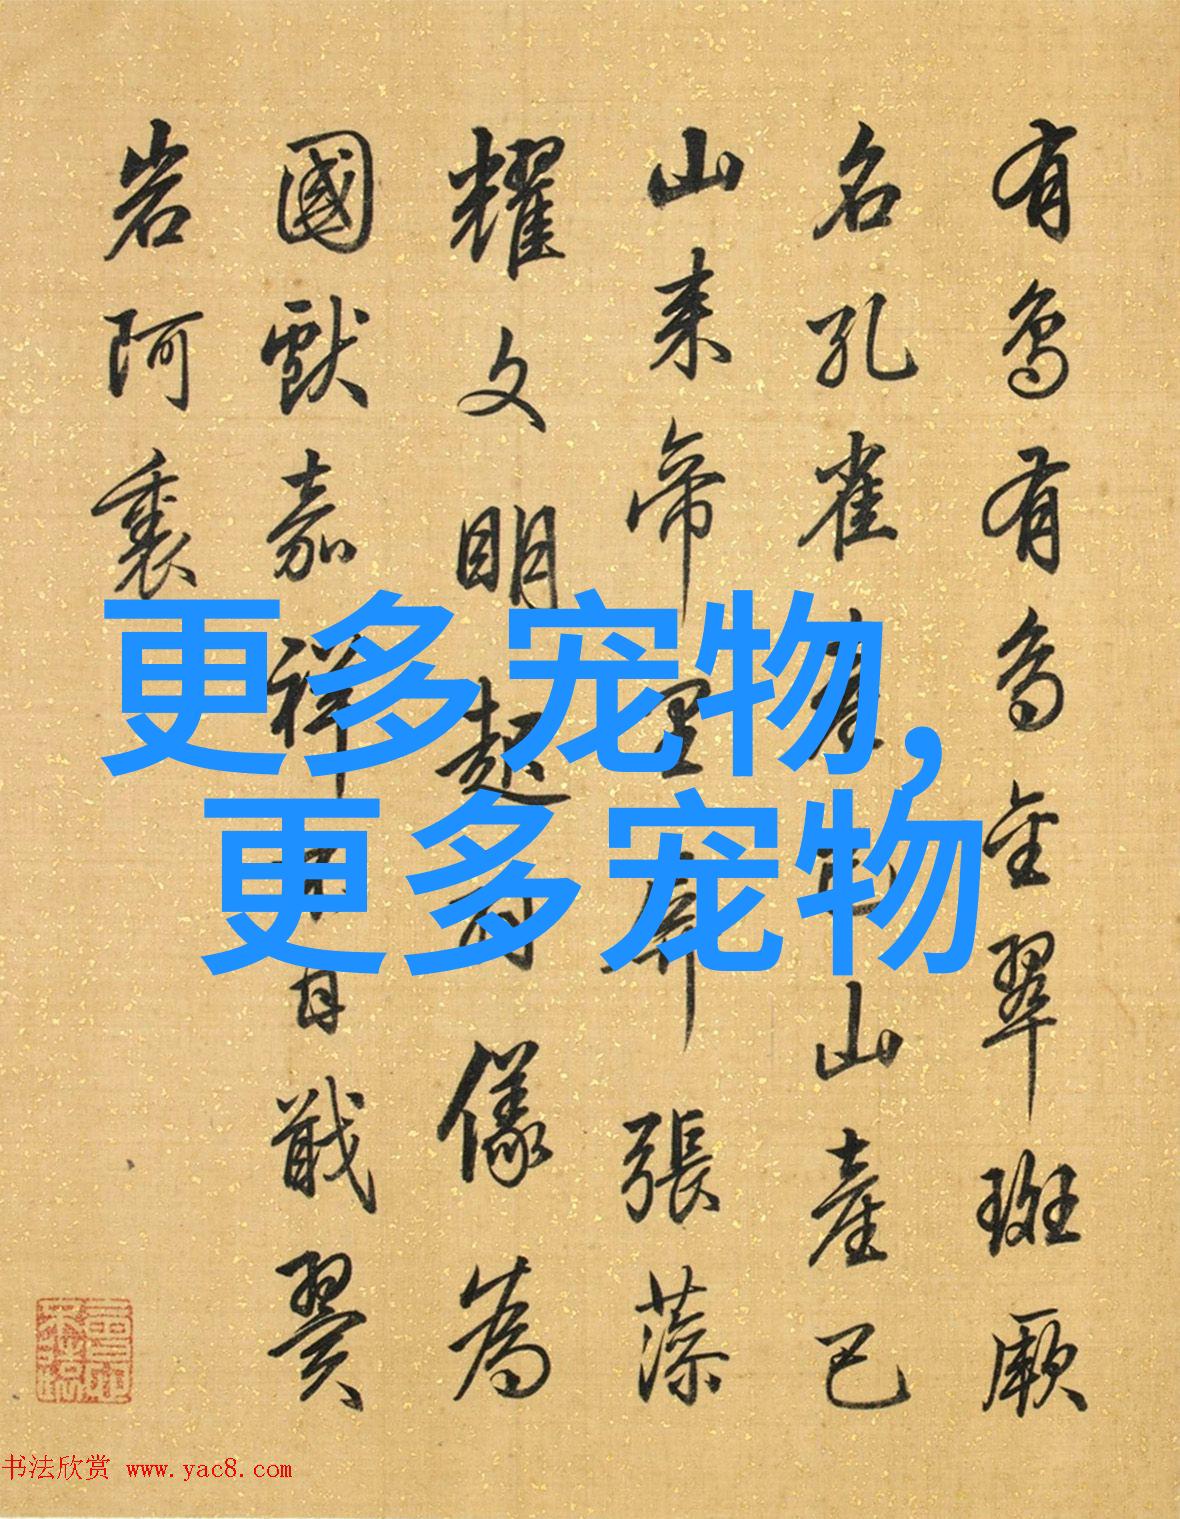 有鳥有鳥金翠斑厥
名孔雀產巴山產巴
山来帝里張藻
耀文明起有儀為
國獻嘉祥戢翼
岩阿裏
更多宠物,
更多宠物
书法欣赏 www.yac8.com